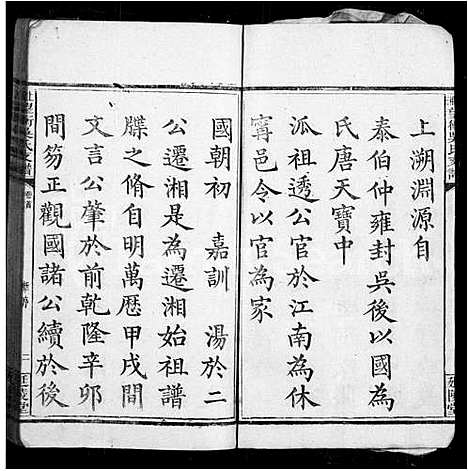 上溯淵源自
泰伯仲雍封吳後以國為
氏唐天寶中
派祖透公官於江南為休
寗邑令以官為家
國朝初　嘉訓　湯於二
公遷湘是為遷湘始祖譜
牒之脩自明萬歷甲戌間
文言公肇於前乾隆辛卯
間笏正觀國諸公續於後